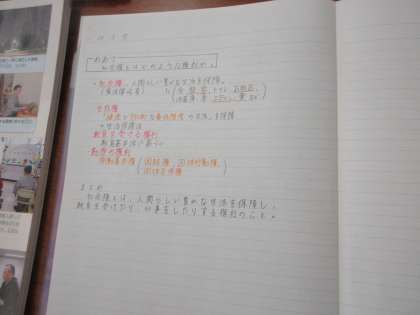 めあて
社会権とはどのような権利か。
・社会権…人間らしい豊かな生活を保障。
生存権
「健康で文化的な最低限度の生活」を保障
→生活保護法
教育を受ける権利
教育基本法に基づく
・勤労の権利
労働基本権(団結権、団体行動権、
団体交渉権
まとめ
社会権とは、人間らしい豊かな生活を保障し、
教育を受けたり、仕事をしたりする権利のこと。